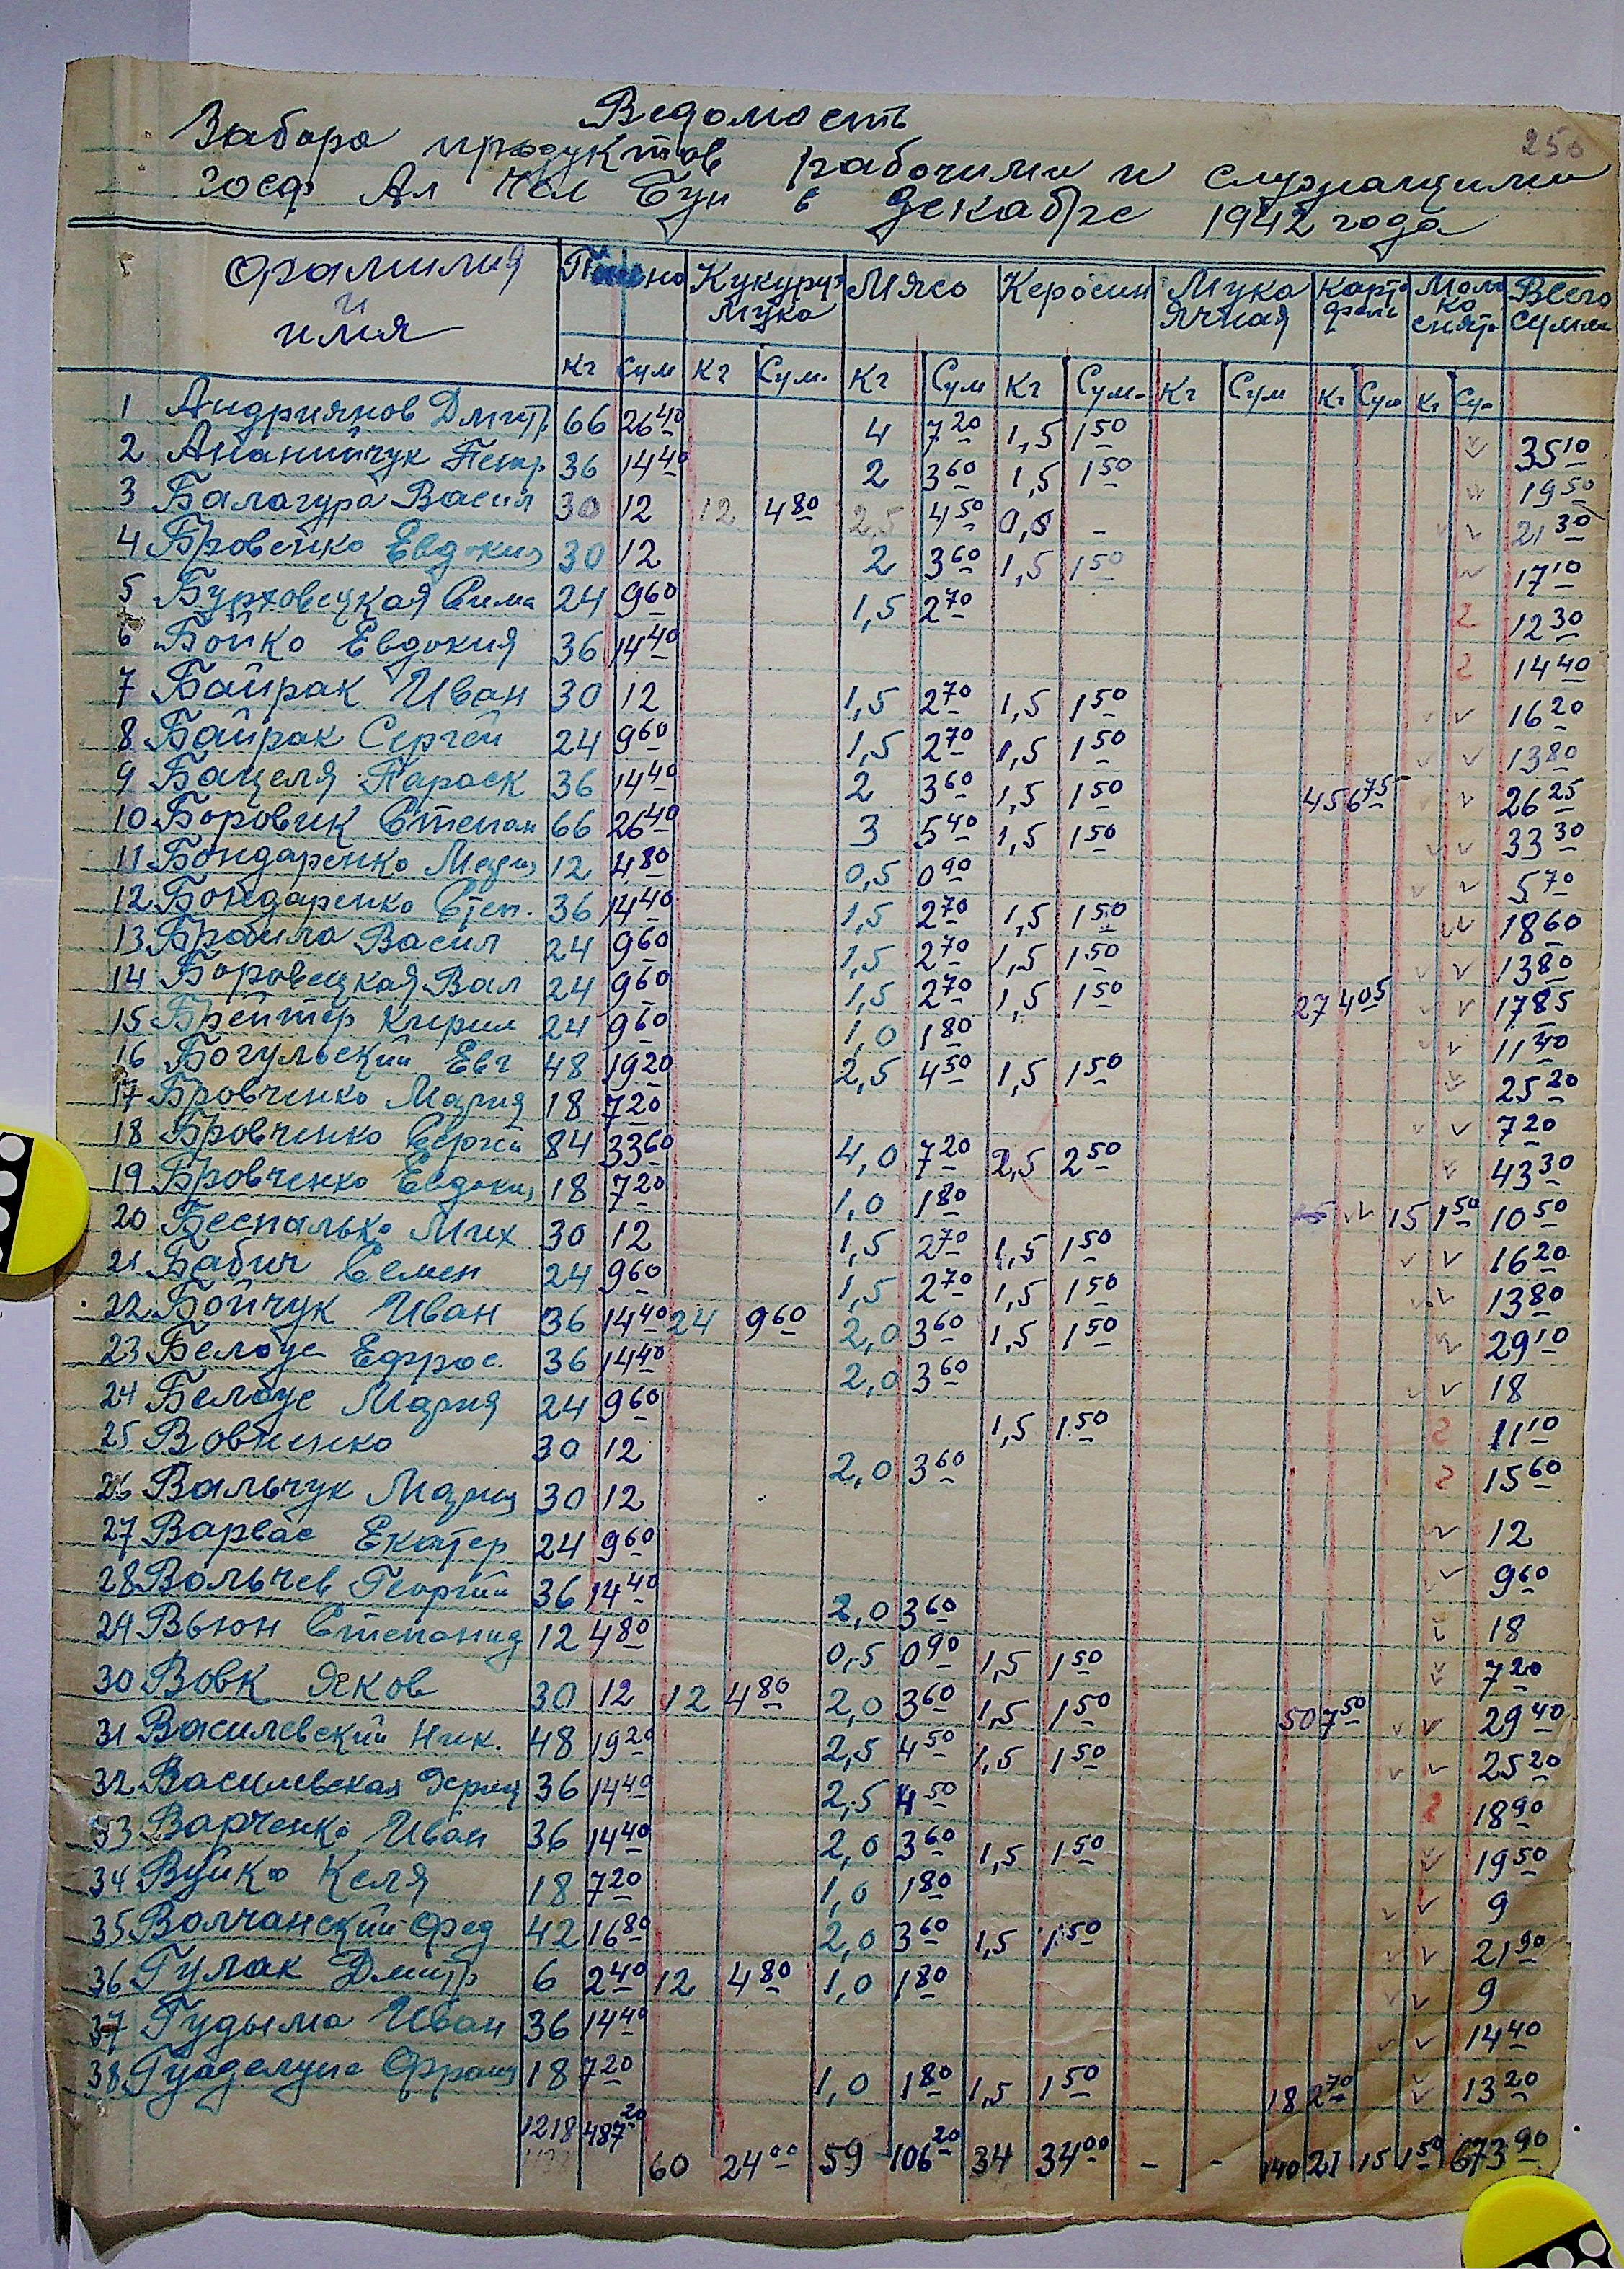 250
Ведомость
Забора продуктов рабочими и служащими
в декабре 1942 года
Фамилия и имя Кукуруз мука Мясо Керосин Мука ячная Карто фель Моло ко снят. Всего сумма
кг Сум кг Сум. кг Сум кг Сум. кг Сум кг Сум кг Су-
1 Андриянов Дмитр 66 26 40 4 7 20 1,5 1 50 35 10
2 Ананийчук Петр 36 14 40 2 3 60 1,5 1 50 19 50
3 Балагура Васил 30 12 12 4 80 2,5 4 50 0,8 - 21 30
4 Бровенко Евдокия 30 12 2 3 60 1,5 1 50 17 10
5 Бурховецкая Сима 24 9 60 1,5 2 70 12 30
6 Бойко Евдокия 36 14 40 14 40
7 Байрак Иван 30 12 1,5 2 70 1,5 1 50 16 20
8 Байрак Сергей 24 9 60 1,5 2 70 1,5 1 50 13 80
9 Бацеля Параск 36 14 40 2 3 60 1,5 1 50 45 6 75 26 25
10 Боровик Степан 66 26 40 3 5 40 1,5 1 50 33 30
11 Бондаренко 12 4 80 0,5 0 90 5 70
12 Бондаренко Степ. 36 14 40 1,5 2 70 1,5 1 50 18 60
13 Васил 24 9 60 1,5 2 70 1,5 1 50 13 80
14 Боровецкая Вал 24 9 60 1,5 2 70 1,5 1 50 27 4 05 17 85
15 Кирил 24 9 60 1,0 1 80 11 40
16 Богульский Евг 48 19 20 2,5 4 50 1,5 1 50 25 20
17 Бровченко Мария 18 7 20 7 20
18 Бровченко Сергей 84 33 60 4,0 7 20 2,5 2 50 43 30
19 Бровченко Евдокия 18 7 20 1,0 1 80 15 1 50 10 50
20 Беспалько Мих 30 12 1,5 2 70 1,5 1 50 16 20
21 Бабич Семен 24 9 60 1,5 2 70 1,5 1 50 13 80
22 Бойчук Иван 36 14 40 24 9 60 2,0 3 60 1,5 1 50 29 10
23 Белоус Ефрос. 36 14 40 2,0 3 60 18
24 Белоус Мария 24 9 60 1,5 1 50 11 10
25 Вовненко 30 12 2,0 3 60 15 60
26 Вальчук Мария 30 12 12
27 Варвас Екатер 24 9 60 9 60
28 Вольчев Георгий 36 14 40 2,0 3 60 18
29 Вьюн Степанид 12 4 80 0,5 0 90 1,5 1 50 7 20
30 Вовк Яков 30 12 12 4 80 2,0 3 60 1,5 1 50 50 7 50 29 40
31 Василевский Ник. 48 19 20 2,5 4 50 1,5 1 50 25 20
32 Василевская 36 14 40 2,5 4 50 18 90
33 Варченко Иван 36 14 40 2,0 3 60 1,5 1 50 19 50
34 Вуйко Келя 18 7 20 1,0 1 80 9
35 Волчанский Фед 42 16 80 2,0 3 60 1,5 1 50 21 90
36 Гулак Дмитр 6 2 40 12 4 80 1,0 1 80 9
37 Гудыма Иван 36 14 40 14 40
38 18 7 20 1,0 1 80 1,5 1 50 18 2 70 13 20
1218 487 20 60 24 00 59 106 20 34 34 00 - - 140 21 15 1 50 673 90